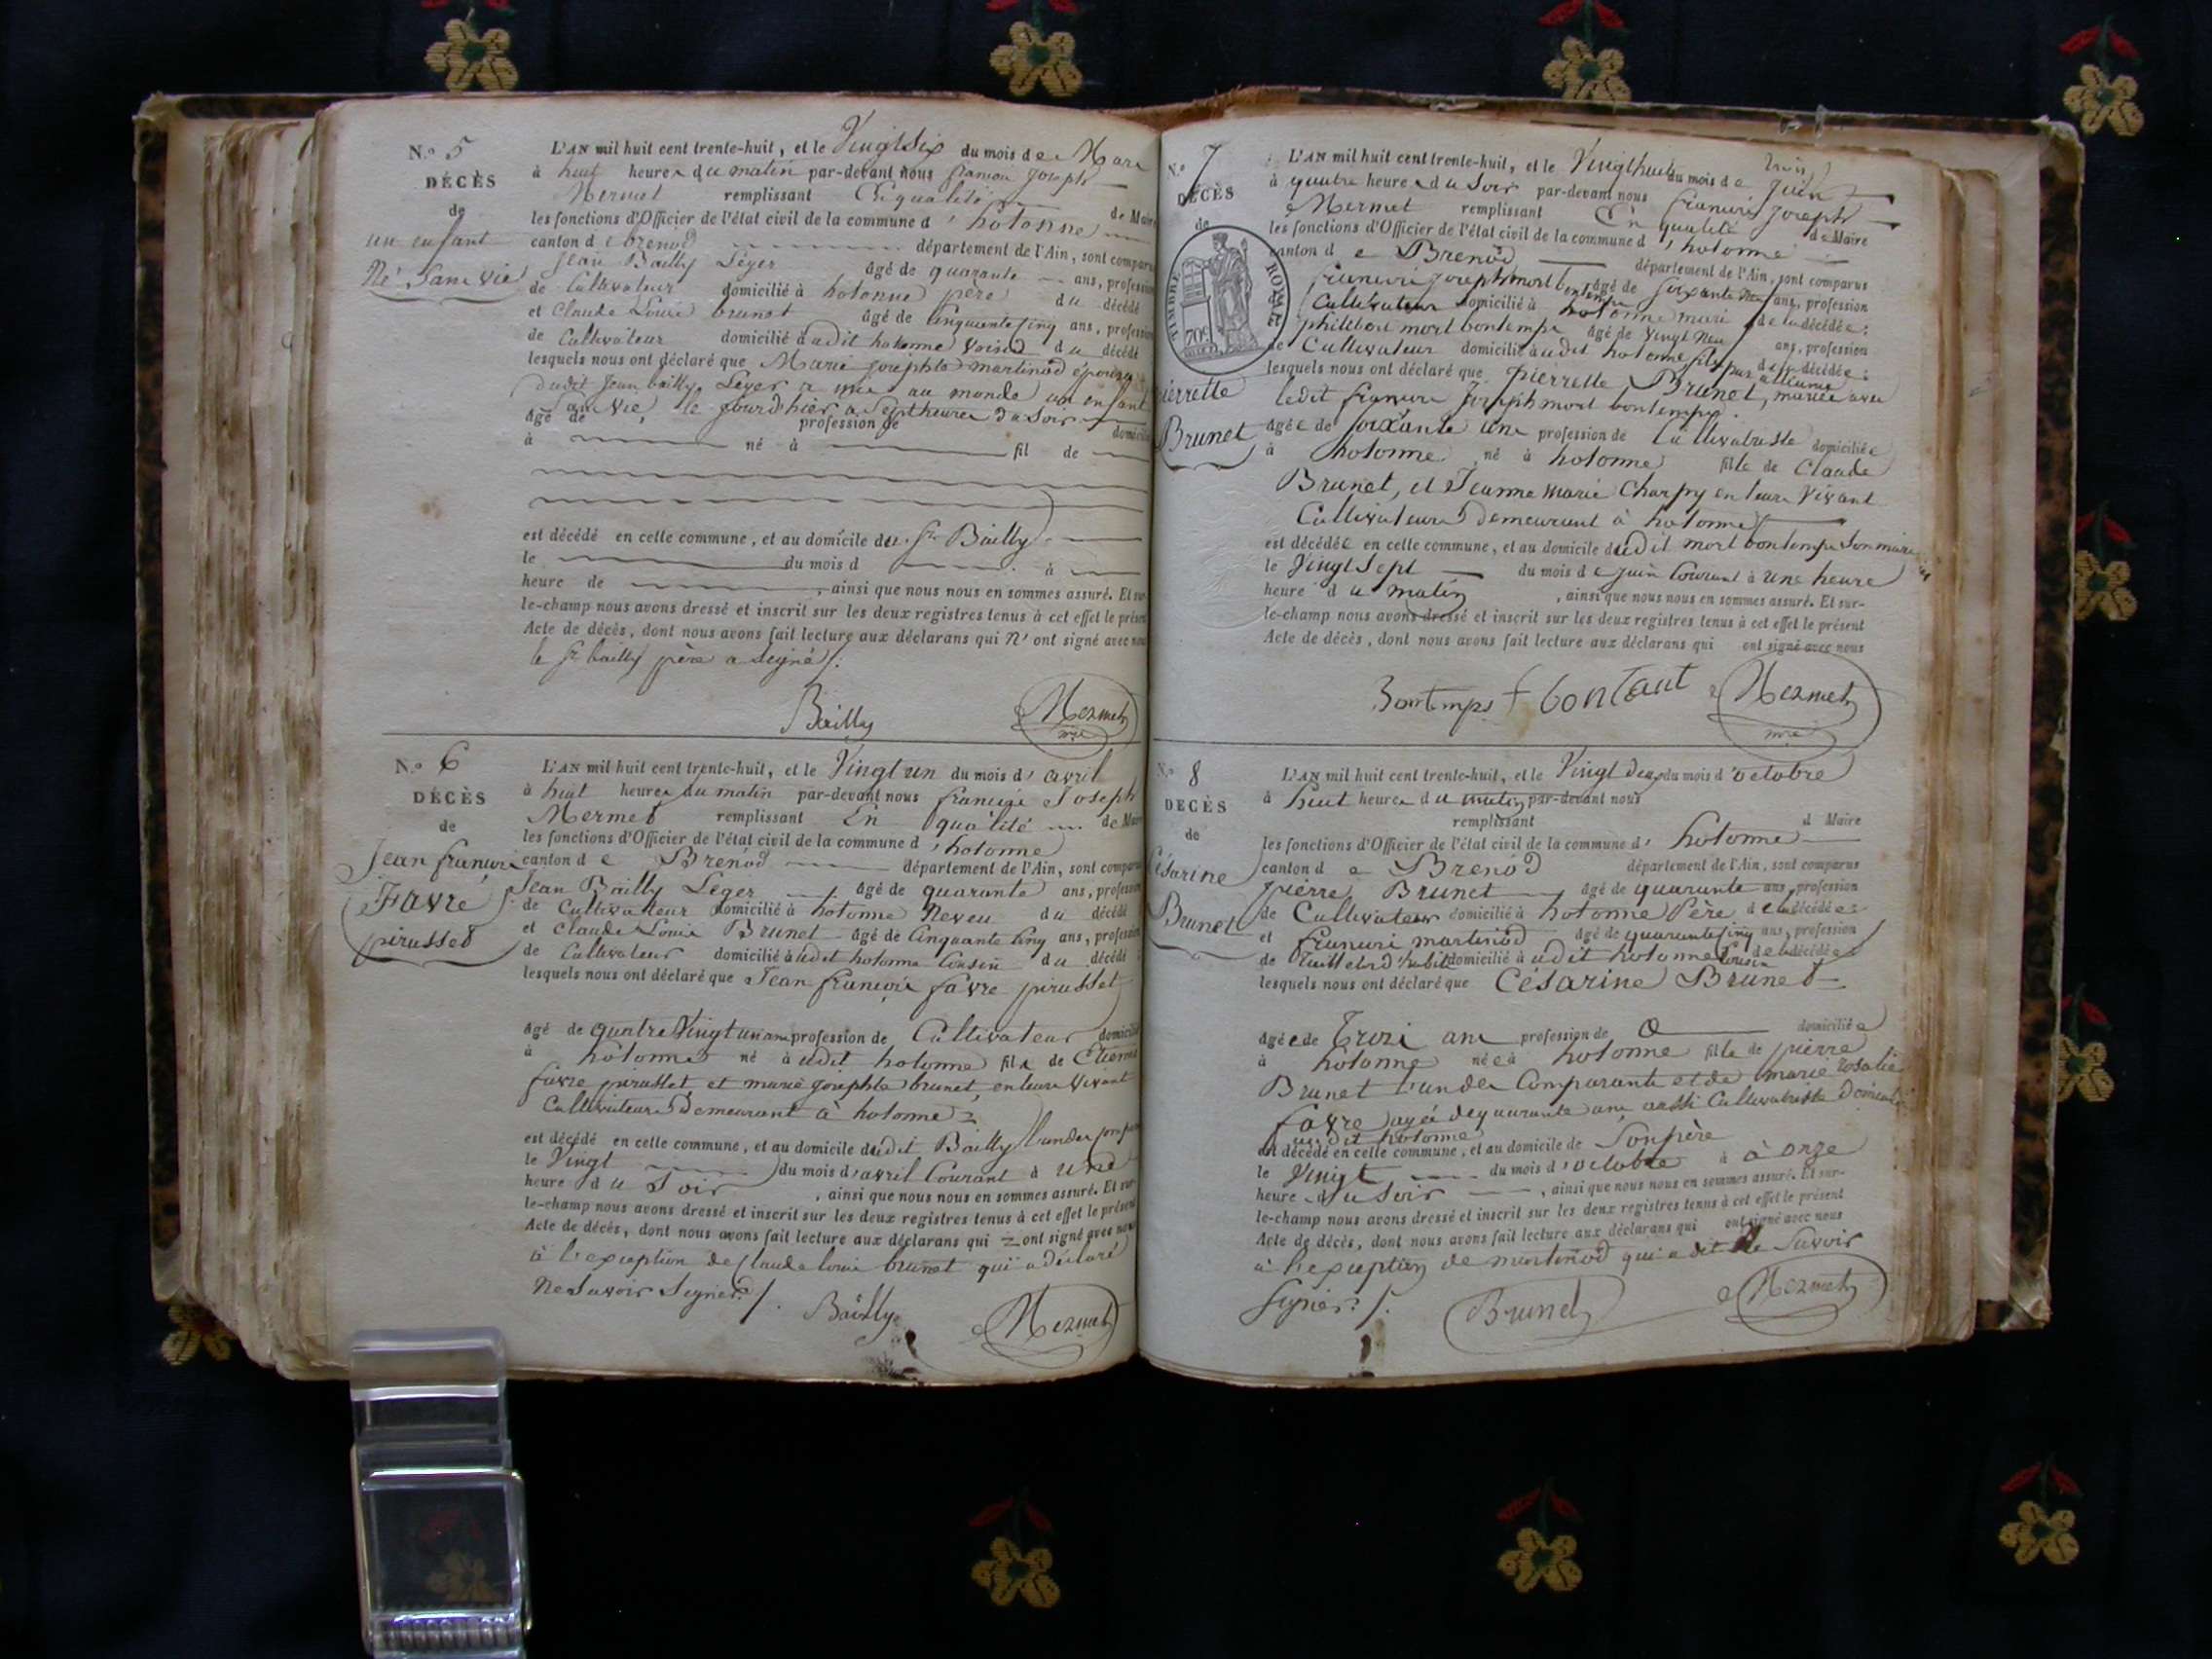 N.o 5
DÉCÈS
de
un enfant
Né Sans vie
L'AN mil huit cent trente-huit, et le Vingt Six du mois de Mars
à huit heures du matin par-devant nous françois joseph
Mermet remplissant En qualité de Maire
les fonctions d'Officier de l'état civil de la commune d'hotonne
canton de brenod département de l'Ain, sont comparu
Jean Bailly Léger âgé de quarante ans, profession
de Cultivateur domicilié à hotonne père du décédé
et Claude Louis brunet âgé de Cinquante Cinq ans, profession
de Cultivateur domicilié audit hotonne voisin du décédé
lesquels nous ont déclaré que Marie josephte martinod épouse
dudit Jean bailly Léger a mis au monde un enfant
San vie, le jourd'hier a Sept heures du Soir
âgé de profession de domicilié
à né à fil de
est décédé en cette commune, et au domicile du Sr Bailly
le du mois d à
heure de , ainsi que nous nous en sommes assuré. Et sur-
le-champ nous avons dressé et inscrit sur les deux registres tenus à cet effet le présent
Acte de décès, dont nous avons fait lecture aux déclarans qui N'ont signé avec nous
le Sr bailly père a Signé /.
Bailly Mermet
mre
N.o 6
DÉCÈS
de
Jean françois
Favre
pirusset
L'AN mil huit cent trente-huit, et le Vingt un du mois d'avril
à huit heures du matin par-devant nous françois Joseph
Mermet remplissant En qualité de Maire
les fonctions d'Officier de l'état civil de la commune d'hotonne
canton de Brenod département de l'Ain, sont comparu
Jean Bailly Léger âgé de quarante ans, profession
de Cultivateur domicilié à hotonne Neveu du décédé
et Claude Louis Brunet âgé de Cinquante Cinq ans, profession
de Cultivateur domicilié audit hotonne Cousin du décédé
lesquels nous ont déclaré que Jean françois favre pirusset
âgé de quatre Vingt un ans profession de Cultivateur domicilié
à hotonne né audit hotonne fils de Etienne
favre pirusset et marie josephte brunet, en leurs vivant
Cultivateurs Demeurant à hotonne
est décédé en cette commune, et au domicile dudit Bailly l'un des
le Vingt du mois d'avril Courant à une
heure du Soir , ainsi que nous nous en sommes assuré. Et sur-
le-champ nous avons dressé et inscrit sur les deux registres tenus à cet effet le présent
Acte de décès, dont nous avons fait lecture aux déclarans qui ont signé avec nous
à l'exception de Claude louis brunet qui a déclaré
Ne Savoir Signer /.
Bailly Mermet
N.o 7
DÉCÈS
de
TIMBRE ROYAL
70c
pierrette
Brunet
L'AN mil huit cent trente-huit, et le Vingt huit du mois de Juin
à quatre heures du Soir par-devant nous françois joseph
Mermet remplissant En qualité de Maire
les fonctions d'Officier de l'état civil de la commune d'hotonne
canton de Brenod département de l'Ain, sont comparus
françois joseph mort bontemps âgé de soixante Neuf ans, profession
Cultivateur domicilié à hotonne mari de la décédée;
philibert mort bontemps âgé de Vingt Neuf ans, profession
de Cultivateur domicilié audit hotonne fils de la décédée;
lesquels nous ont déclaré que pierrette Brunet, mariée avec
ledit françois Joseph mort bontemps.
âgée de soixante une profession de Cultivatriste domiciliée
à hotonne né à hotonne fille de Claude
Brunet, et Jeanne marie Charpy en leurs vivant
Cultivateurs Demeurant à hotonne
est décédée en cette commune, et au domicile dudit mort bontemps Son mari
le Vingt Sept du mois de juin Courant à une heure
heure du matin , ainsi que nous nous en sommes assuré. Et sur-
le-champ nous avons dressé et inscrit sur les deux registres tenus à cet effet le présent
Acte de décès, dont nous avons fait lecture aux déclarans qui ont signé avec nous
Bontemps f bontant Mermet
mre
N.o 8
DÉCÈS
de
Césarine
Brunet
L'AN mil huit cent trente-huit, et le Vingt deux du mois d'octobre
à huit heures du matin par-devant nous
remplissant d Maire
les fonctions d'Officier de l'état civil de la commune d'hotonne
canton de Brenod département de l'Ain, sont comparus
pierre Brunet âgé de quarante ans, profession
de Cultivateur domicilié à hotonne Père de la décédée;
et françois martinod âgé de quarante Cinq ans, profession
de d'habits domicilié audit hotonne Cousin de la décédée
lesquels nous ont déclaré que Césarine Brunet
âgée de Trois ans profession de domiciliée
à hotonne née à hotonne fille de pierre
Brunet l'un des Comparants et de marie rosalie
favre agée de quarante ans aussi Cultivatriste Domiciliée
audit hotonne
est décédé en cette commune, et au domicile de Son père
le Vingt du mois d'octobre à à onze
heure du Soir , ainsi que nous nous en sommes assuré. Et sur-
le-champ nous avons dressé et inscrit sur les deux registres tenus à cet effet le présent
Acte de décès, dont nous avons fait lecture aux déclarans qui ont signé avec nous
à l'exception de martinod qui a dit Ne Savoir
Signer /.
Brunet Mermet